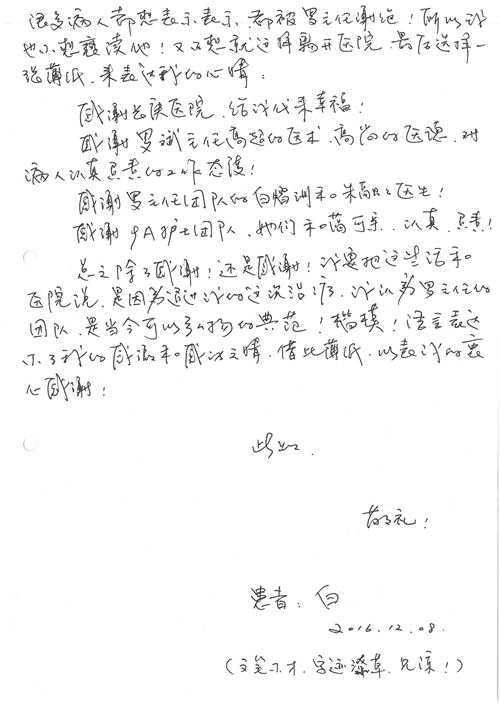 很多病人都想表示表示,都被罗主任谢绝!所以我
也不想亵渎他!又不想就这样离开医院,最后选择一
张薄纸,来表达我的心情:
感谢 医院,给我带来幸福!
感谢罗斌主任高超的医术,高尚的医德,对
病人认真负责的工作态度!
感谢罗主任团队的白 和朱 医生!
感谢9A护士团队,她们和蔼可亲,认真、负责!
总之除了感谢!还是感谢!我要把这些话和
医院说,是因为通过我的这次治疗,我认为罗主任的
团队,是当今可以 的典范!楷模!语言表达
不了我的感激和感动之情,借此薄纸,以表我的衷
心感谢!
此致
敬礼!
患者:白
2016.12.08.
(文笔不才,字迹潦草,见谅!)